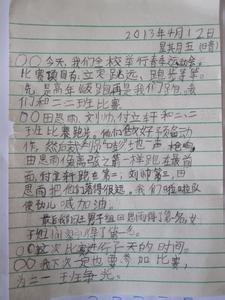 2013年4月12日
星其月五(阴)
○○今天,我们全校举行春季运动会,
比赛项目有:立定跳远、跑步等等。
先是高年级跑再是我们跑。我
们和二二班比赛
○○田思雨、刘帅、付立轩和二二
班比赛跑步。他们做好预备动
作,然后裁判员 一声 枪响,
田思雨像离弦之箭一样跑在最前
面,付立轩跑在第二,刘帅第三,田
思雨把他们落得很远。我们啦啦队
使劲儿喊加油。
最后我们班男子组田思雨得了第一名,女
子组 得了第一名。
○○这次比赛进行了一天的时间。
○○我下次 也要参加比赛,
为二一班争光。